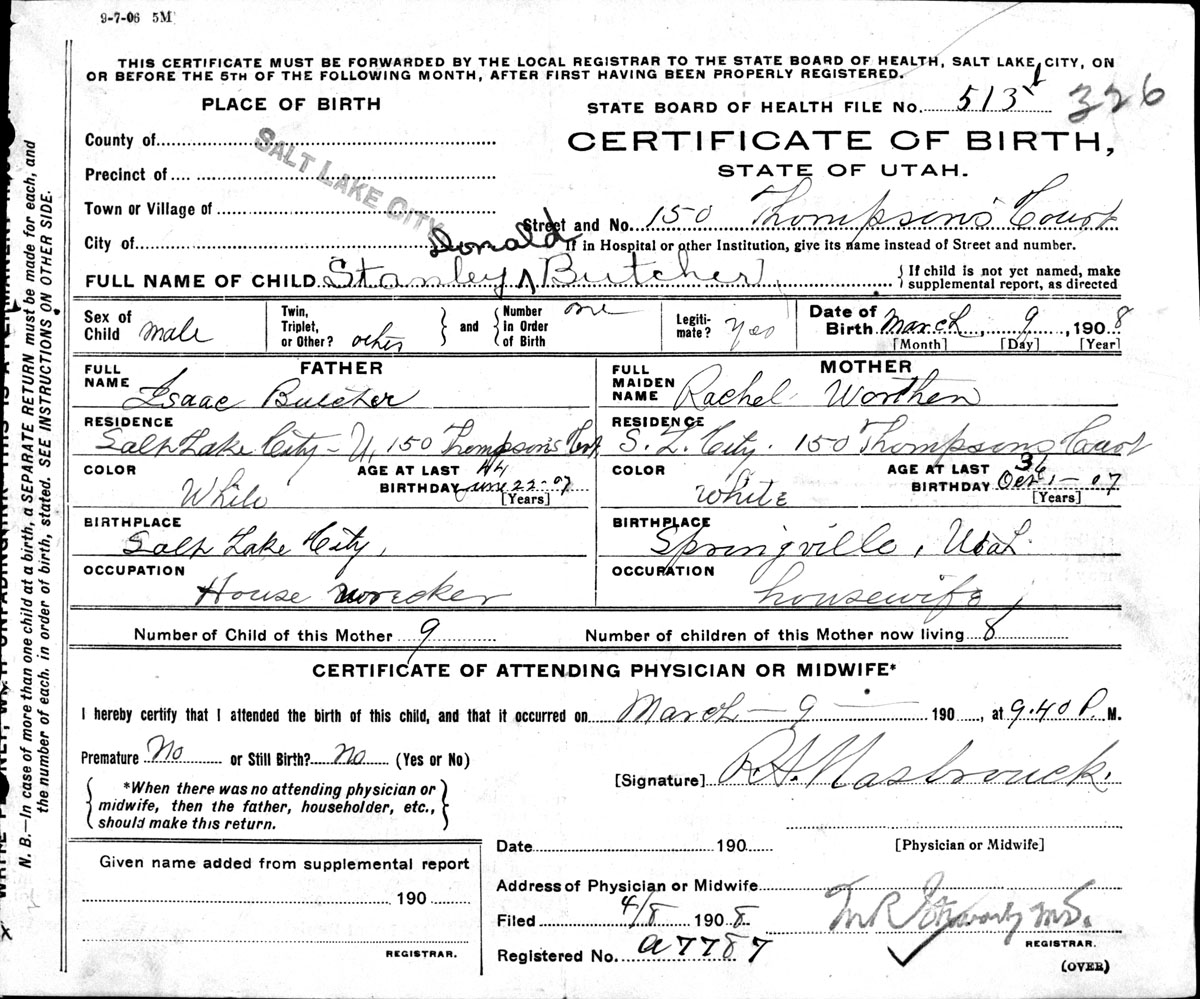 9-7-06 5M
THIS CERTIFICATE MUST BE FORWARDED BY THE LOCAL REGISTRAR TO THE STATE BOARD OF HEALTH, SALT LAKE CITY, ON
OR BEFORE THE 5TH OF THE FOLLOWING MONTH, AFTER FIRST HAVING BEEN PROPERLY REGISTERED.
PLACE OF BIRTH
STATE BOARD OF HEALTH FILE No. 513 326
County of
CERTIFICATE OF BIRTH,
SALT LAKE CITY
Precinct of
STATE OF UTAH.
Town or Village of
Street and No. 150 Thompson's Court
City of
If in Hospital or other Institution, give its name instead of Street and number.
FULL NAME OF CHILD Stanley Donald Butcher
If child is not yet named, make
supplemental report, as directed
Sex of Child male
Twin, Triplet, or Other? other
and Number in Order of Birth one
Legiti-mate? Yes
Date of Birth March 9, 1908
[Month] [Day] [Year]
FATHER
MOTHER
FULL NAME Isaac Butcher
FULL MAIDEN NAME Rachel Worthen
RESIDENCE Salt Lake City - U, 150 Thompson's
RESIDENCE S. L. City. 150 Thompsons Court
COLOR White
AGE AT LAST BIRTHDAY 44 June 22-07
[Years]
COLOR White
AGE AT LAST BIRTHDAY 36 Oct 1-07
[Years]
BIRTHPLACE Salt Lake City,
BIRTHPLACE Springville, Utah
OCCUPATION House wrecker
OCCUPATION housewife
Number of Child of this Mother 9
Number of children of this Mother now living 8
CERTIFICATE OF ATTENDING PHYSICIAN OR MIDWIFE*
I hereby certify that I attended the birth of this child, and that it occurred on March - 9 - 190 , at 9.40 P. M.
Premature No or Still Birth? No (Yes or No)
[Signature] R.A. Hasbrouck.
*When there was no attending physician or
midwife, then the father, householder, etc.,
should make this return.
Date 190
[Physician or Midwife]
Given name added from supplemental report
190
REGISTRAR.
Address of Physician or Midwife
Filed 4/8 1908
REGISTRAR.
Registered No. a7787
(OVER)
N. B.—In case of more than one child at a birth, a SEPARATE RETURN must be made for each, and
the number of each, in order of birth, stated. SEE INSTRUCTIONS ON OTHER SIDE.